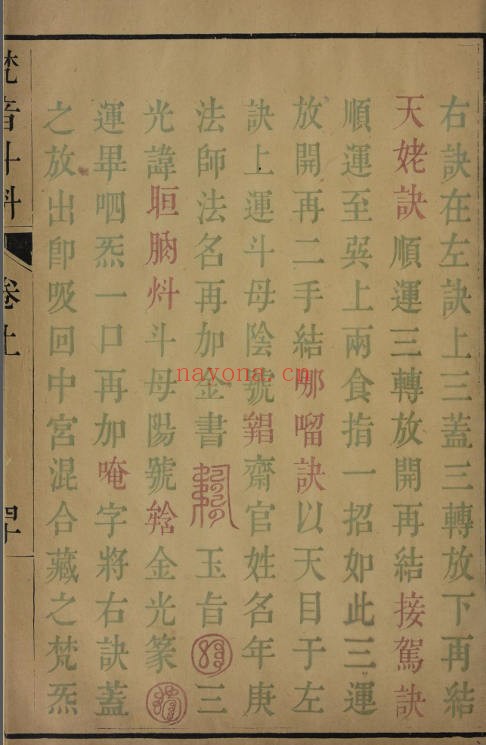 右訣在左訣上三蓋三轉放下再結
天姥訣順運三轉放開再結接駕訣
順運至巽上兩食指一招如此三運
放開再二手結哪嚠訣以天目于左
訣上運斗母陰號齋官姓名年庚
法師法名再加金書玉旨三
光諱斗母陽號金光篆
運畢呬炁一口再加唵字將右訣蓋
之放出卽吸回中宮混合藏之梵炁
梵音斗科 卷上 四十
nayona.cn